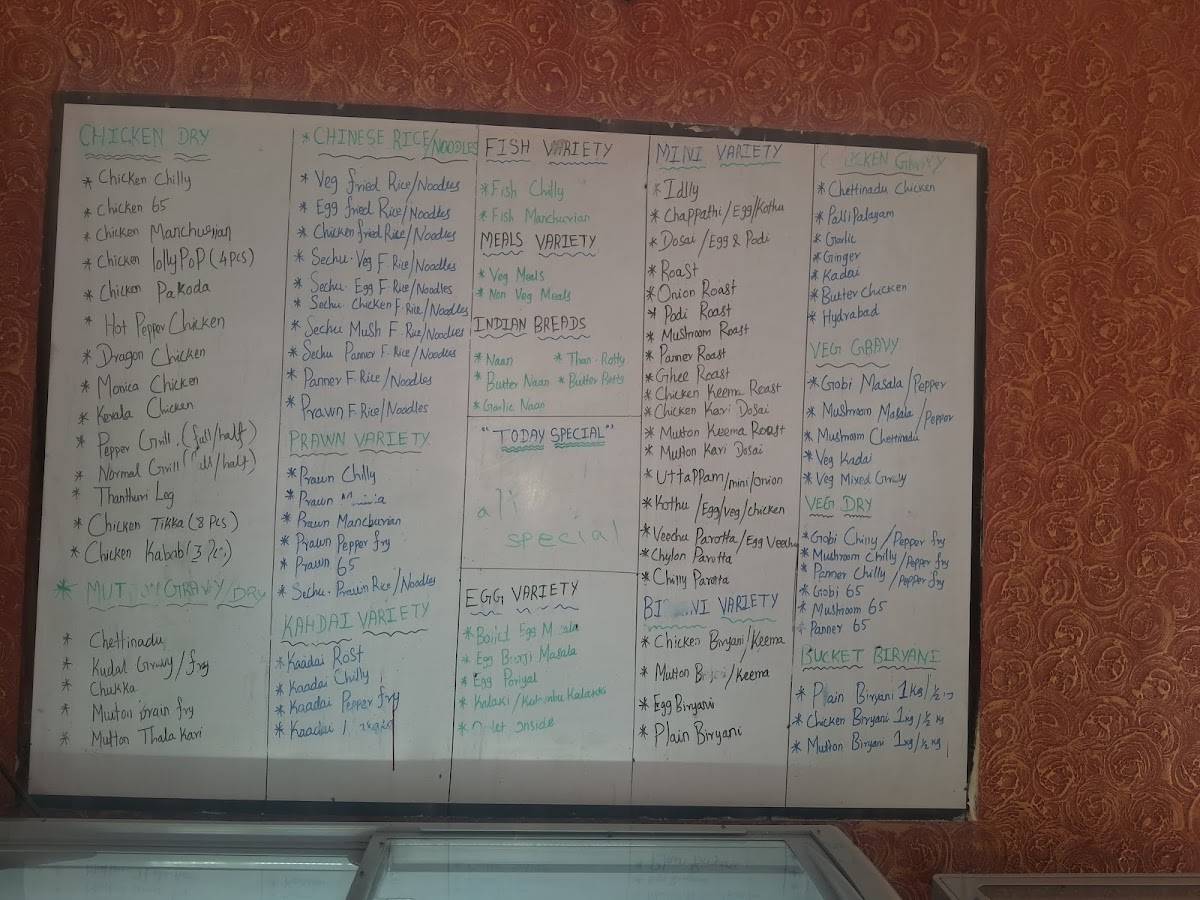 CHICKEN DRY
* Chicken Chilly
* Chicken 65
* Chicken Manchurian
* Chicken lollyPoP (4pcs)
* Chicken Pakoda
* Hot Pepper Chicken
* Dragon Chicken
* Monica Chicken
* Kerala Chicken
* Pepper Grill (full/half)
* Normal Grill (full/half)
* Thanthuri Leg
* Chicken Tikka (8 Pcs)
* Chicken Kabab (3 Pcs)
* MUTTON GRAVY/DRY
* Chettinadu
* Kudal Gravy/fry
* Chukka
* Mutton brain fry
* Mutton Thala kari
* CHINESE RICE/NOODLES
* Veg fried Rice/Noodles
* Egg fried Rice/Noodles
* Chicken fried Rice/Noodles
* Sechu. Veg F. Rice/Noodles
* Sechu. Egg F. Rice/Noodles
* Sechu. Chicken F. Rice/Noodles
* Sechu Mush F. Rice/Noodles
* Sechu Panner F. Rice/Noodles
* Panner F. Rice/Noodles
* Prawn F. Rice/Noodles
PRAWN VARIETY
* Prawn Chilly
* Prawn
* Prawn Manchurian
* Prawn Pepper fry
* Prawn 65
* Sechu. Prawn Rice/Noodles
KAHDAI VARIETY
* Kaadai Rost
* Kaadai Chilly
* Kaadai Pepper fry
* Kaadai
FISH VARIETY
* Fish Chilly
* Fish Manchurian
MEALS VARIETY
* Veg Meals
* Non Veg Meals
INDIAN BREADS
* Naan * Than. Rotty
* Butter Naan * Butter Rotty
* Garlic Naan
"TODAY SPECIAL"
all
special
EGG VARIETY
* Boiled Egg Masala
* Egg Burji Masala
* Egg Poriyal
* Kalaki/
* inside
MINI VARIETY
* Idlly
* Chappathi/Egg/Kothu
* Dosai/Egg & Podi
* Roast
* Onion Roast
* Podi Roast
* Mushroom Roast
* Panner Roast
* Ghee Roast
* Chicken Keema Roast
* Chicken Kari Dosai
* Mutton Keema Roast
* Mutton Kari Dosai
* UTTAPPam/mini/onion
* Kothu/Egg/veg/chicken
* Veechu Parotta/Egg Veechu
* Chylon Parotta
* Chilly Parotta
BIRYANI VARIETY
* Chicken Biryani/Keema
* Mutton Biryani/Keema
* Egg Biryani
* Plain Biryani
CHICKEN GRAVY
* Chettinadu Chicken
* PalliPalayam
* Garlic
* Ginger
* Kadai
* Butter Chicken
* Hydrabad
VEG GRAVY
* Gobi Masala/Pepper
* Mushroom Masala/Pepper
* Mushroom Chettinadu
* Veg Kadai
* Veg Mixed Gravy
VEG DRY
* Gobi Chilly/Pepper fry
* Mushroom Chilly/Pepper fry
* Panner Chilly/Pepper fry
* Gobi 65
* Mushroom 65
* Panner 65
BUCKET BIRYANI
* Plain Biryani 1Kg/½ kg
* Chicken Biryani 1kg/½ kg
* Mutton Biryani 1kg/½ kg